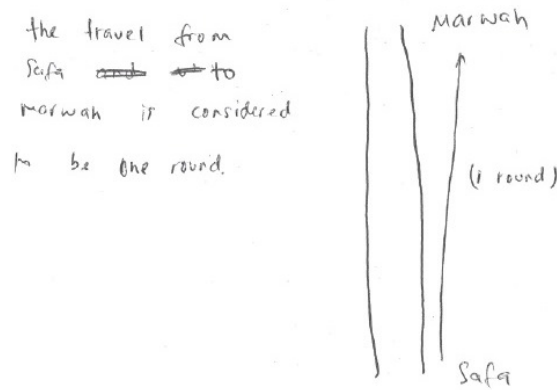 the travel from
Safa to
Marwah is considered
to be one round.
Marwah
(1 round)
Safa